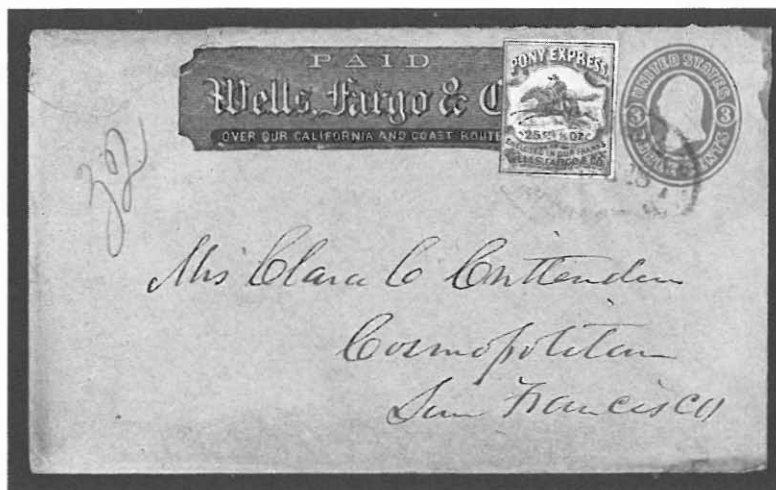 PAID
Wells, Fargo & C
OVER OUR CALIFORNIA AND COAST ROUTE
PONY EXPRESS
25 ½ OZ
ENCLOSED IN OUR FRANKS
WELLS, FARGO & CO.
UNITED STATES
3 3
CENTS
32
Mrs Clara C Crittenden
Cosmopolitan
San Francisco